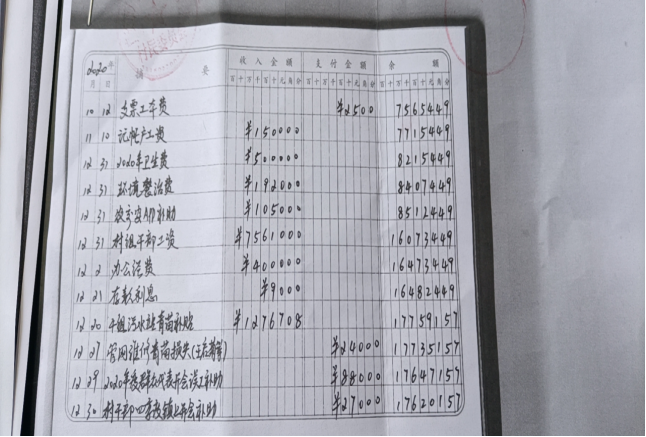 2020年 摘 要 收入金额 支付金额 余 额
月 日 百十万千百十元角分 百十万千百十元角分 百十万千百十元角分
10 12 支票工车费 ¥2500 7565449
11 10 记帐户工资 ¥150000 7715449
12 31 2020年卫生费 ¥500000 8215449
12 31 环境整治费 ¥192000 8407449
12 31 补助 ¥105000 8512449
12 31 村组干部工资 ¥7561000 16073449
12 2 办公话费 ¥400000 16473449
12 21 存款利息 ¥9000 16482449
12 20 组污水站青苗补贴 ¥1276708 17759157
12 27 管网维修青苗损失 ¥24000 17735157
12 29 2020年度群众代表开会误工补助 ¥88000 17647157
12 30 村干部四季度镇上开会补助 ¥27000 17620157